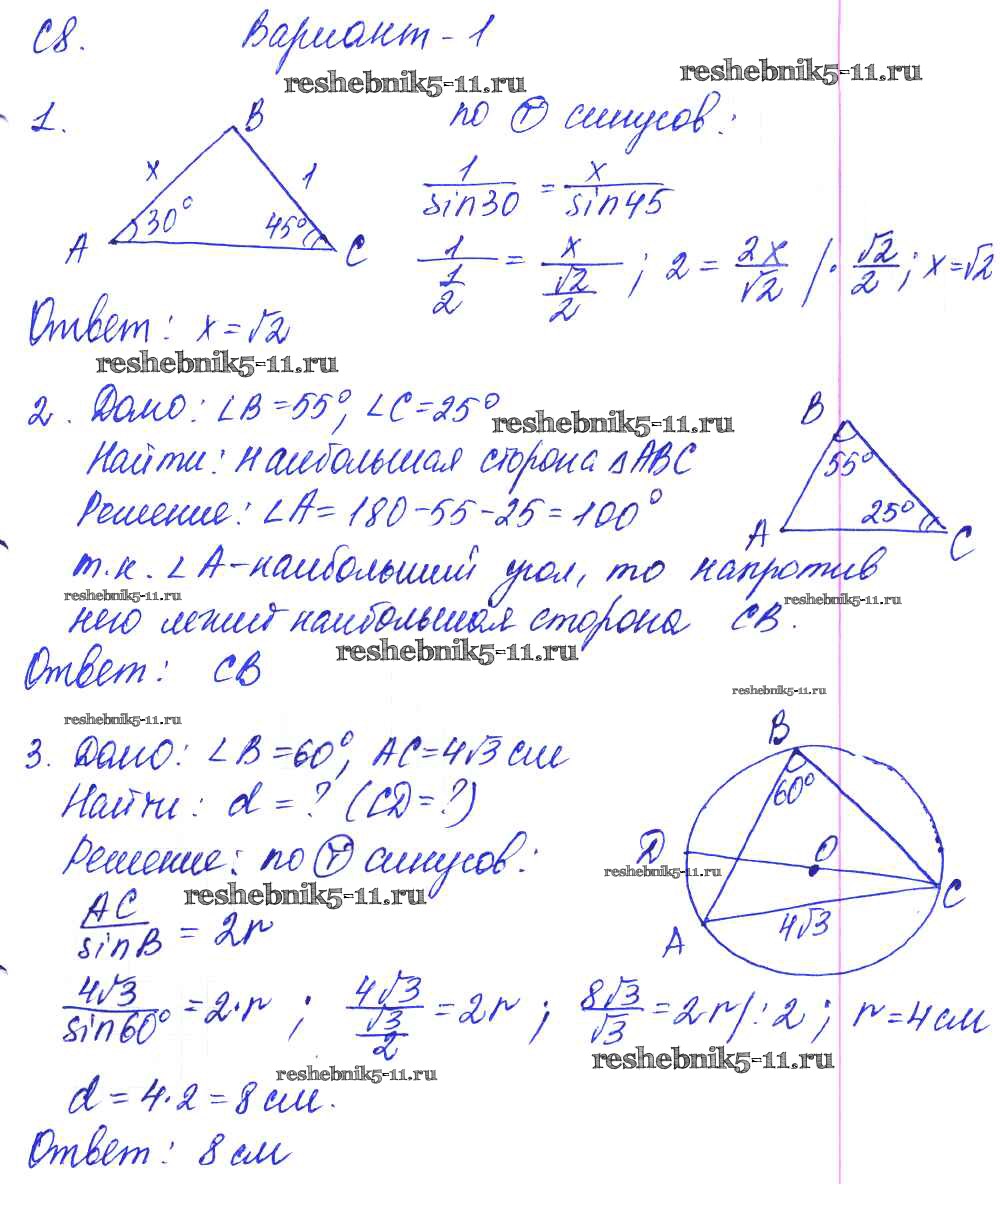 С8. Вариант - 1
reshebnik5-11.ru reshebnik5-11.ru
1. по Ⓣ синусов:
B
x 1
30° 45°
A C
1/sin30 = x/sin45
1/(1/2) = x/(√2/2) ; 2 = 2x/√2 /· √2/2 ; x=√2
Ответ: x=√2
reshebnik5-11.ru
2. Дано: ∠B=55°, ∠C=25°
reshebnik5-11.ru
Найти: наибольшая сторона ΔABC
Решение: ∠A=180-55-25=100°
B
55°
25°
A C
т.к. ∠A-наибольший угол, то напротив
reshebnik5-11.ru reshebnik5-11.ru
него лежит наибольшая сторона CB.
reshebnik5-11.ru
Ответ: CB
reshebnik5-11.ru
reshebnik5-11.ru
3. Дано: ∠B=60°, AC=4√3 см
Найти: d=? (CD=?)
Решение: по Ⓣ синусов:
reshebnik5-11.ru
B
60°
D O
reshebnik5-11.ru
C
A 4√3
AC/sinB = 2r
4√3/sin60° = 2·r ; 4√3/(√3/2) = 2r ; 8√3/√3 = 2r/:2 ; r=4см
reshebnik5-11.ru
reshebnik5-11.ru
d=4·2=8 см.
Ответ: 8 см